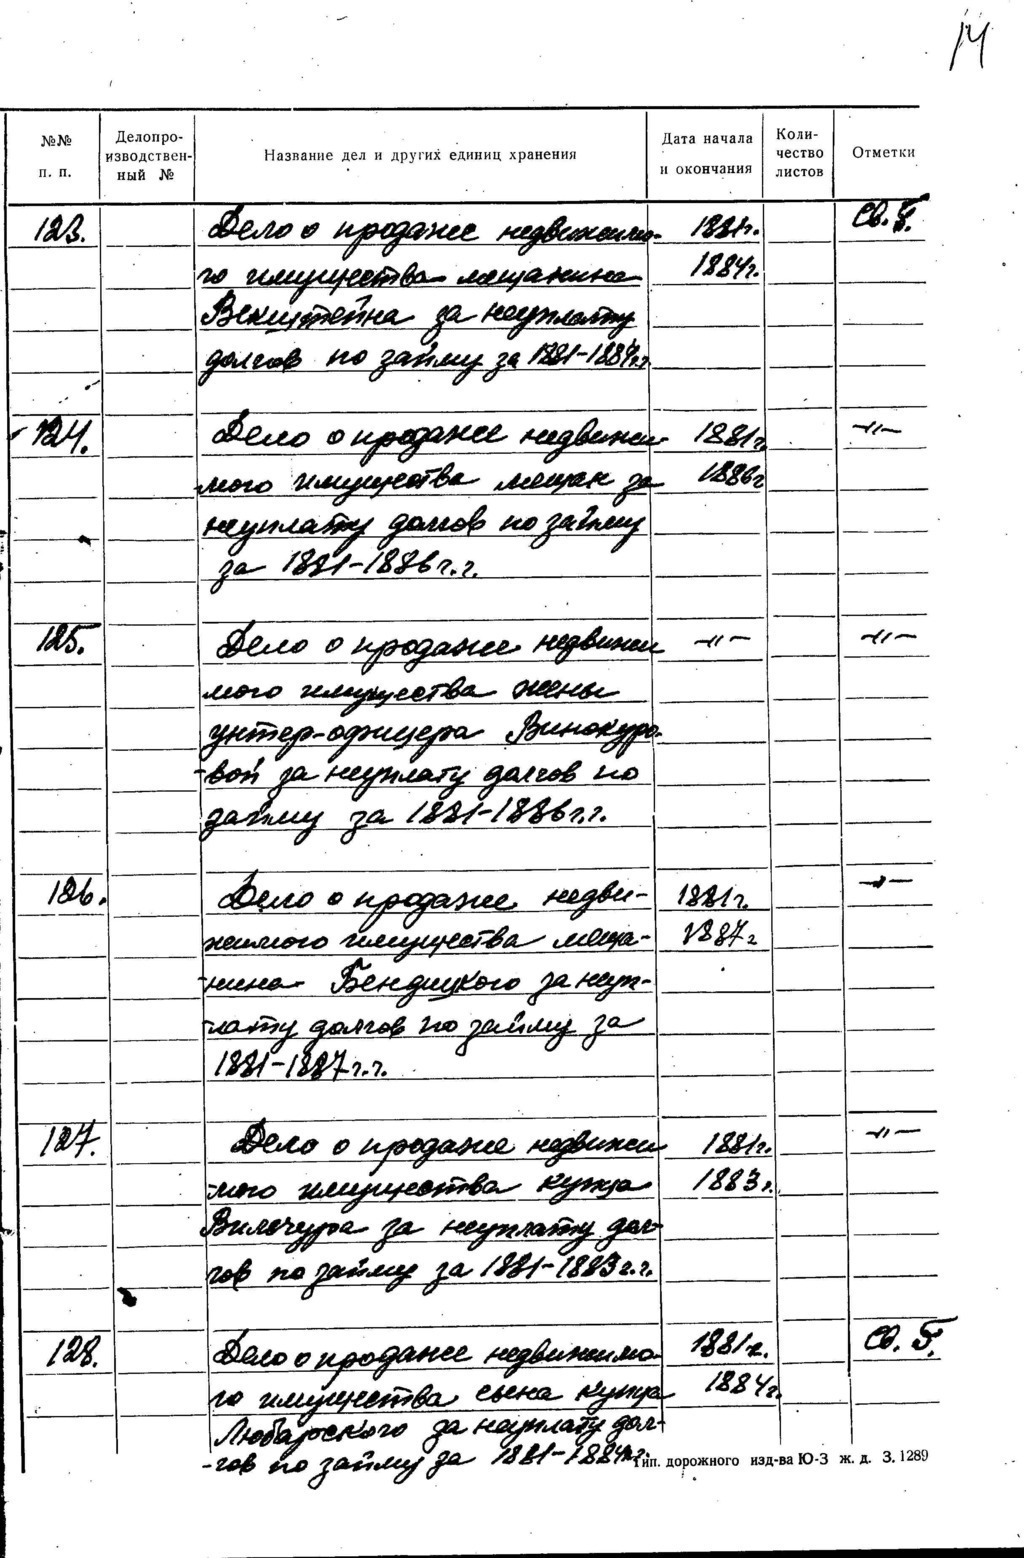 14
№№ п. п. Делопроизводствен- ный № Название дел и других единиц хранения Дата начала и окончания Коли- чество листов Отметки
123. Дело о продаже недвижимо- 1881г. Св. 5.
го имущества мещанина 1884г.
Векштейна за неуплату
долгов по займу за 1881-1884г.г.
124. Дело о продаже недвижи- 1881г. -"-
мого имущества мещан за 1886г
неуплату долгов по займу
за 1881-1886г.г.
125. Дело о продаже недвижи -"- -"-
мого имущества жены
унтер-офицера Винокуро-
-вой за неуплату долгов по
займу за 1881-1886г.г.
126. Дело о продаже недви- 1881г. -"-
жимого имущества меща- 1887г
-нина Бендицкого за неуп-
-лату долгов по займу за
1881-1887г.г.
127. Дело о продаже недвижи 1881г. -"-
-мого имущества купца 1883г.
Вилечура за неуплату дол-
гов по займу за 1881-1883г.г.
128. Дело о продаже недвижимо- 1881г. Св. 5.
го имущества сына купца 1884г.
Любарского за неуплату дол-
-гов по займу за 1881-1884г.г.
Тип. дорожного изд-ва Ю-З ж. д. З. 1289